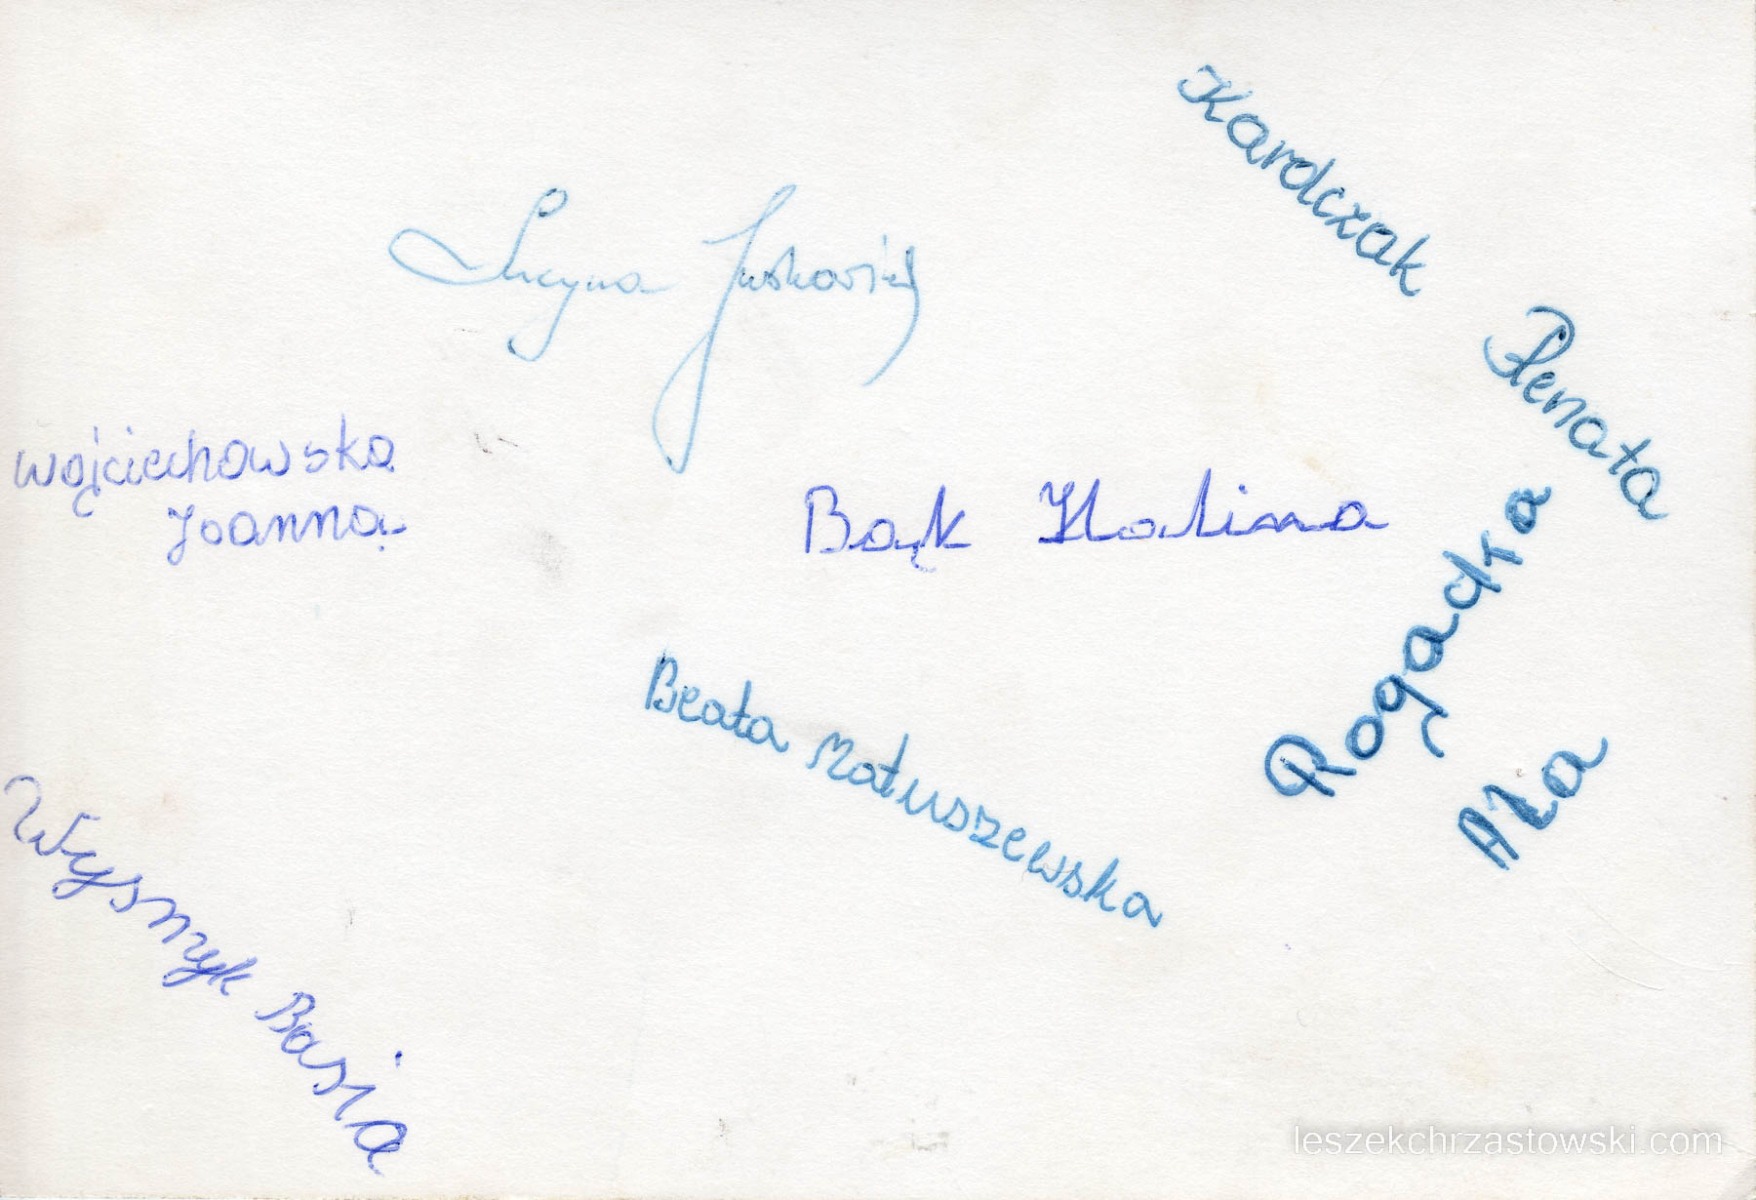 Karolczak Renata
Lucyna
Wojciechowska
Joanna
Bąk Halina
Rogacka
Ala
Beata Matuszewska
Wysmyk Basia
leszekchrzastowski.com